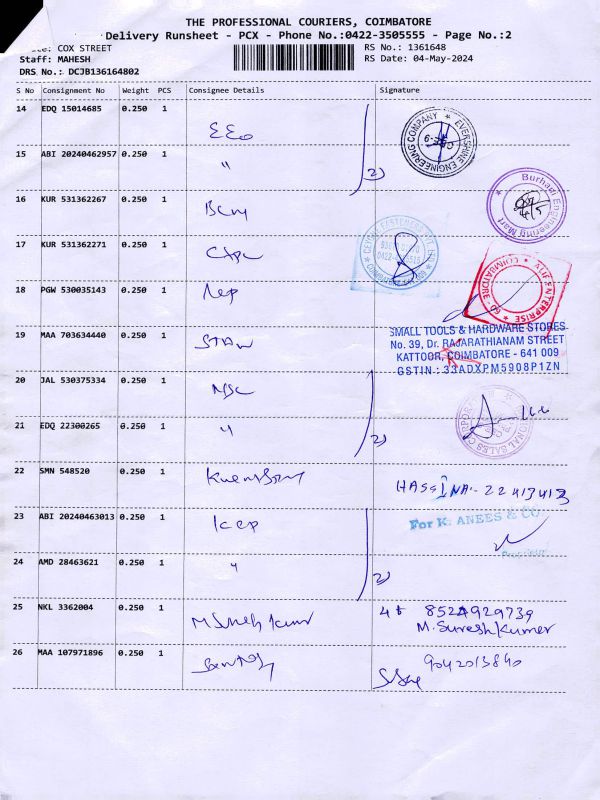 THE PROFESSIONAL COURIERS, COIMBATORE
Delivery Runsheet - PCX - Phone No.:0422-3505555 - Page No.:2
COX STREET
RS No.: 1361648
Staff: MAHESH
RS Date: 04-May-2024
DRS No.: DCJB136164802
S No Consignment No Weight PCS Consignee Details Signature
14 EDQ 15014685 0.250 1
EVERSHINE ENGINEERING COMPANY
15 ABI 20240462957 0.250 1 "
2)
16 KUR 531362267 0.250 1
Burhani Engineering Mart
17 KUR 531362271 0.250 1
18 PGW 530035143 0.250 1
ALIF ENTERPRISE
COIMBATORE
19 MAA 703634440 0.250 1
SMALL TOOLS & HARDWARE STORES
No. 39, Dr. RAJARATHIANAM STREET
KATTOOR, COIMBATORE - 641 009
GSTIN : 33ADXPM5908P1ZN
20 JAL 530375334 0.250 1 NSC
21 EDQ 22300265 0.250 1 "
2)
SALES CORPORATION
22 SMN 548520 0.250 1
HASSINA - 22413413
23 ABI 20240463013 0.250 1
For K. ANEES & CO.
24 AMD 28463621 0.250 1 "
2)
25 NKL 3362004 0.250 1 M Suresh Kumar
8524929739
M. Suresh Kumar
26 MAA 107971896 0.250 1
9042013840